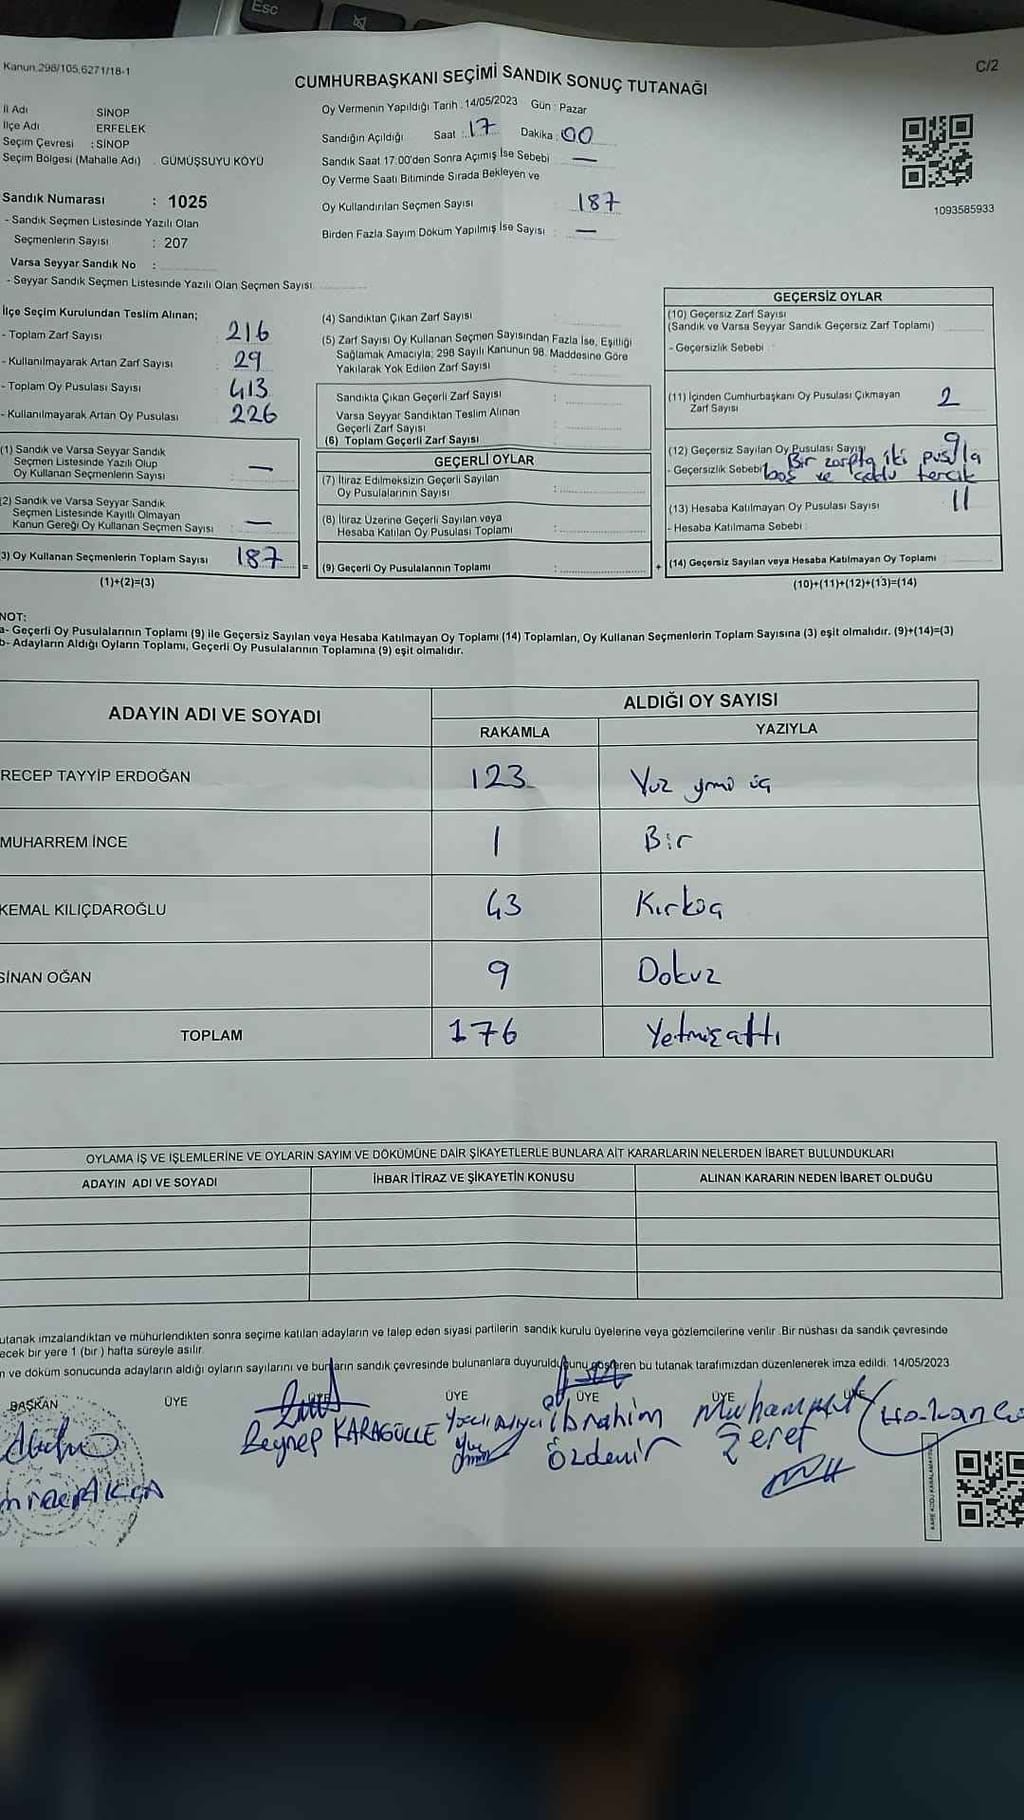 Esc
Kanun.298/105,6271/18-1
C/2
CUMHURBAŞKANI SEÇİMİ SANDIK SONUÇ TUTANAĞI
İl Adı : SİNOP
İlçe Adı : ERFELEK
Seçim Çevresi : SİNOP
Seçim Bölgesi (Mahalle Adı) : GÜMÜŞSUYU KÖYÜ
Sandık Numarası : 1025
- Sandık Seçmen Listesinde Yazılı Olan
Seçmenlerin Sayısı : 207
Varsa Seyyar Sandık No :
- Seyyar Sandık Seçmen Listesinde Yazılı Olan Seçmen Sayısı:
Oy Vermenin Yapıldığı Tarih : 14/05/2023 Gün : Pazar
Sandığın Açıldığı Saat : 17 Dakika : 00
Sandık Saat 17:00'den Sonra Açımış İse Sebebi : —
Oy Verme Saati Bitiminde Sırada Bekleyen ve
Oy Kullandırılan Seçmen Sayısı : 187
Birden Fazla Sayım Döküm Yapılmış İse Sayısı : —
1093585933
İlçe Seçim Kurulundan Teslim Alınan;
- Toplam Zarf Sayısı : 216
- Kullanılmayarak Artan Zarf Sayısı : 29
- Toplam Oy Pusulası Sayısı : 413
- Kullanılmayarak Artan Oy Pusulası : 226
(1) Sandık ve Varsa Seyyar Sandık
Seçmen Listesinde Yazılı Olup
Oy Kullanan Seçmenlerin Sayısı : —
(2) Sandık ve Varsa Seyyar Sandık
Seçmen Listesinde Kayıtlı Olmayan
Kanun Gereği Oy Kullanan Seçmen Sayısı : —
(3) Oy Kullanan Seçmenlerin Toplam Sayısı 187 =
(1)+(2)=(3)
(4) Sandıktan Çıkan Zarf Sayısı :
(5) Zarf Sayısı Oy Kullanan Seçmen Sayısından Fazla İse, Eşitliği
Sağlamak Amacıyla; 298 Sayılı Kanunun 98. Maddesine Göre
Yakılarak Yok Edilen Zarf Sayısı :
Sandıkta Çıkan Geçerli Zarf Sayısı :
Varsa Seyyar Sandıktan Teslim Alınan
Geçerli Zarf Sayısı :
(6) Toplam Geçerli Zarf Sayısı :
GEÇERLİ OYLAR
(7) İtiraz Edilmeksizin Geçerli Sayılan
Oy Pusulalarının Sayısı :
(8) İtiraz Üzerine Geçerli Sayılan veya
Hesaba Katılan Oy Pusulası Toplamı :
(9) Geçerli Oy Pusulalarının Toplamı : +
GEÇERSİZ OYLAR
(10) Geçersiz Zarf Sayısı
(Sandık ve Varsa Seyyar Sandık Geçersiz Zarf Toplamı)
- Geçersizlik Sebebi :
(11) İçinden Cumhurbaşkanı Oy Pusulası Çıkmayan
Zarf Sayısı 2
(12) Geçersiz Sayılan Oy Pusulası Sayısı 9
- Geçersizlik Sebebi Bir zarfta iki pusula
boş ve
(13) Hesaba Katılmayan Oy Pusulası Sayısı 11
- Hesaba Katılmama Sebebi :
(14) Geçersiz Sayılan veya Hesaba Katılmayan Oy Toplamı
(10)+(11)+(12)+(13)=(14)
NOT:
a- Geçerli Oy Pusulalarının Toplamı (9) ile Geçersiz Sayılan veya Hesaba Katılmayan Oy Toplamı (14) Toplamları, Oy Kullanan Seçmenlerin Toplam Sayısına (3) eşit olmalıdır. (9)+(14)=(3)
b- Adayların Aldığı Oyların Toplamı, Geçerli Oy Pusulalarının Toplamına (9) eşit olmalıdır.
ADAYIN ADI VE SOYADI
ALDIĞI OY SAYISI
RAKAMLA
YAZIYLA
RECEP TAYYİP ERDOĞAN 123 Yüz yirmi üç
MUHARREM İNCE 1 Bir
KEMAL KILIÇDAROĞLU 43 Kırküç
SİNAN OĞAN 9 Dokuz
TOPLAM 176 Yetmişattı
OYLAMA İŞ VE İŞLEMLERİNE VE OYLARIN SAYIM VE DÖKÜMÜNE DAİR ŞİKAYETLERLE BUNLARA AİT KARARLARIN NELERDEN İBARET BULUNDUKLARI
ADAYIN ADI VE SOYADI
İHBAR İTİRAZ VE ŞİKAYETİN KONUSU
ALINAN KARARIN NEDEN İBARET OLDUĞU
utanak imzalandıktan ve mühürlendikten sonra seçime katılan adayların ve talep eden siyasi partilerin sandık kurulu üyelerine veya gözlemcilerine verilir. Bir nüshası da sandık çevresinde
ecek bir yere 1 (bir) hafta süreyle asılır.
n ve döküm sonucunda adayların aldığı oyların sayılarını ve bunların sandık çevresinde bulunanlara duyurulduğunu gösteren bu tutanak tarafımızdan düzenlenerek imza edildi. 14/05/2023
BAŞKAN ÜYE ÜYE ÜYE ÜYE ÜYE ÜYE
AKÇA
Zeynep KARAGÜLLE
İbrahim
Özdemir
Muhammet
Zeref